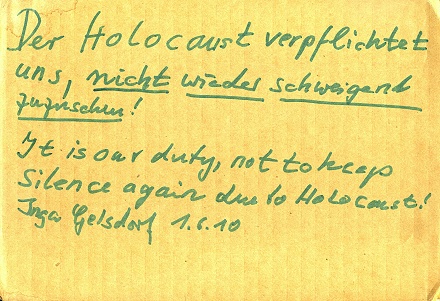 Der Holocaust verpflichtet
uns, nicht wieder schweigend
zuzusehen!
It is our duty, not to keep
Silence again due to Holocaust!
Inga Gelsdorf 1.6.10